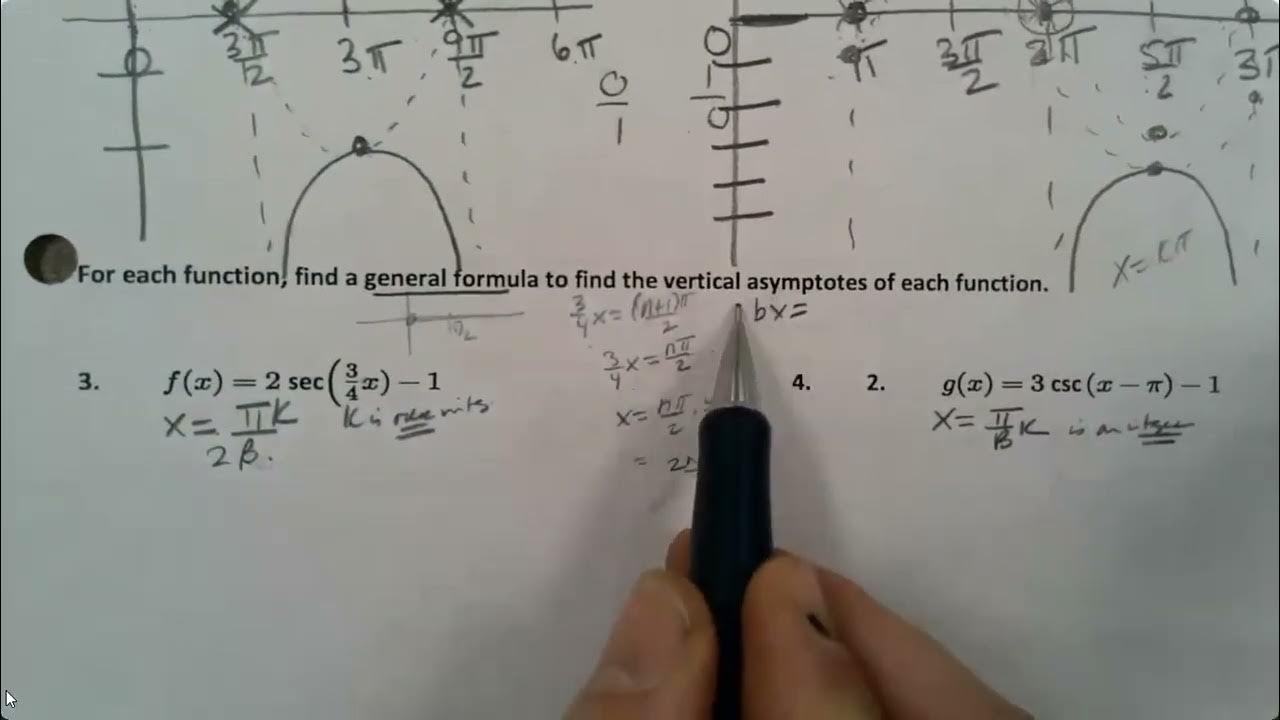 3π/12 3π 9π/2 6π 0/1
0 -1 0 π 3π/2 2π 5π/2 3π
x=kπ
For each function, find a general formula to find the vertical asymptotes of each function.
3/4x=(n+1)π/2 bx=
3/4x=nπ/2
3. f(x) = 2 sec(3/4x) − 1
x=πK/2B. K is
x=nπ/2
4. 2. g(x) = 3 csc (x − π) − 1
x=π/B K is an integer
= 2